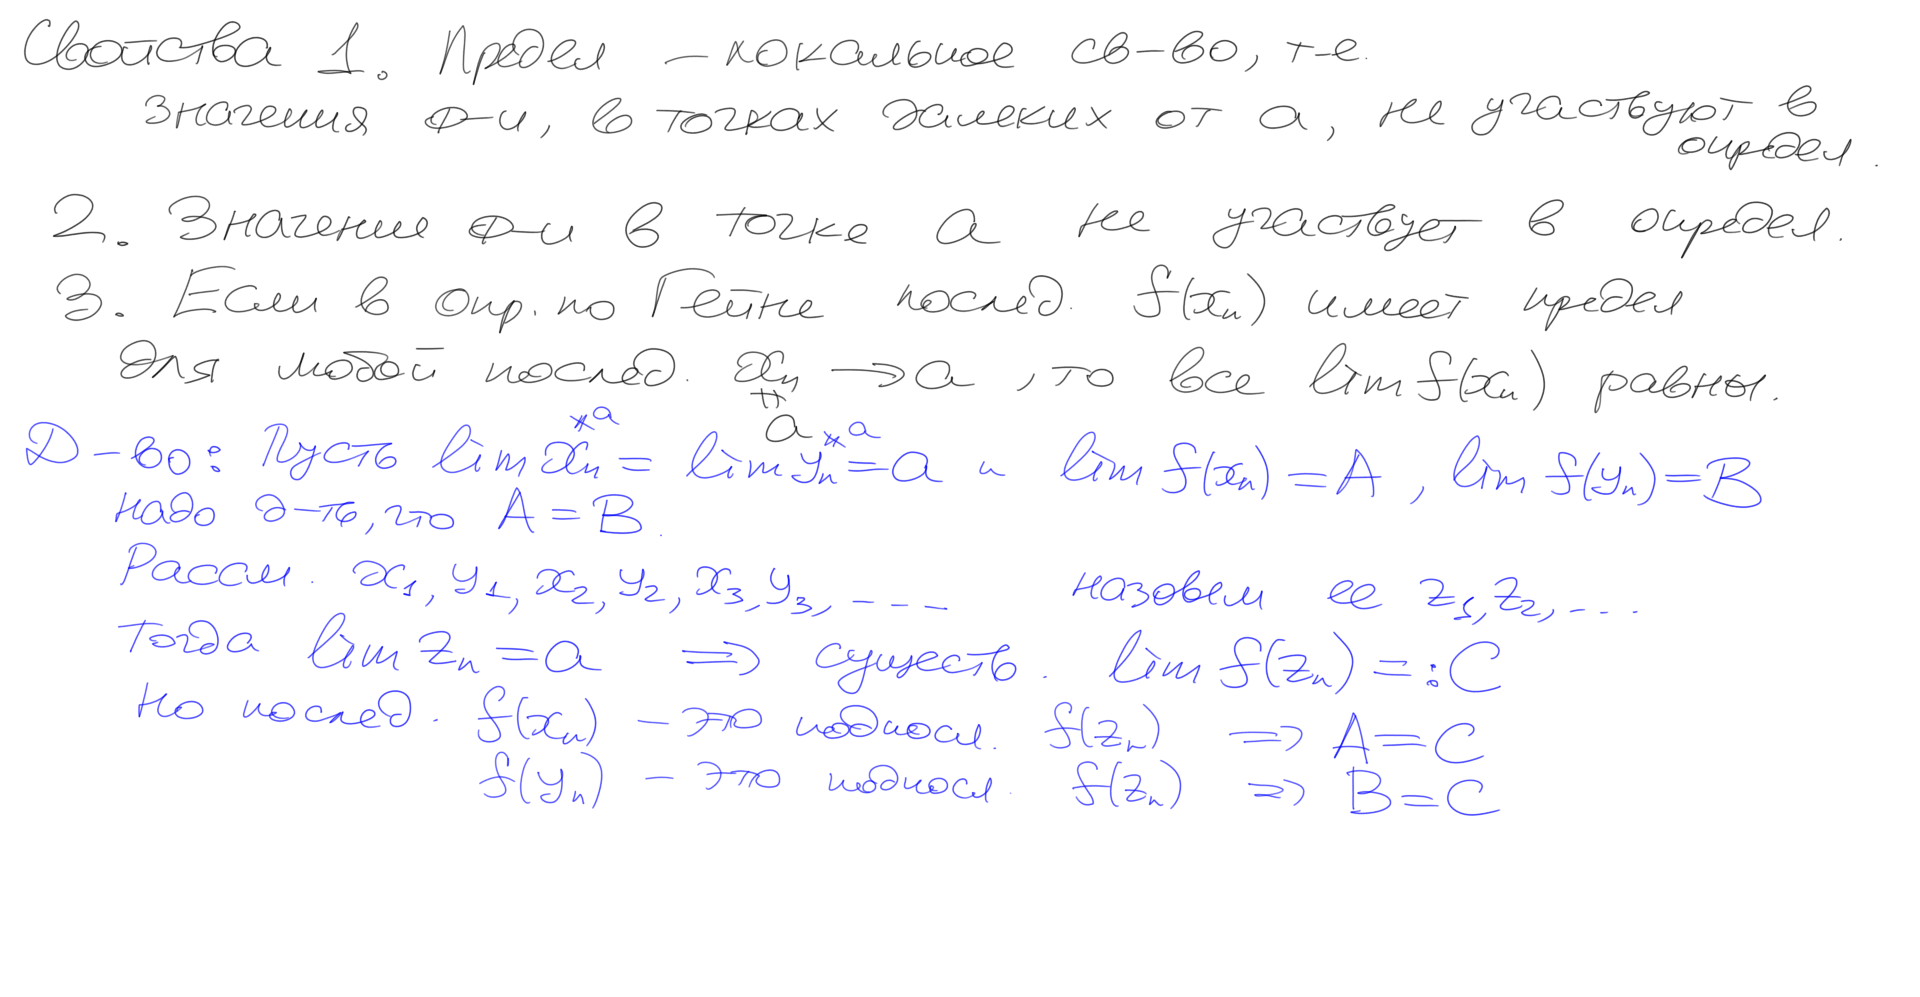 Свойства 1. Предел – локальное св-во, т-е.
значения ф-и, в точках далеких от a, не участвуют в
определ.
2. Значение ф-и в точке a не участвует в определ.
3. Если в опр. по Гейне послед. f(xₙ) имеет предел
для любой послед. xₙ → a, то все lim f(xₙ) равны.
≠
a
≠a ≠a
Д-во: Пусть lim xₙ = lim yₙ = a и lim f(xₙ) = A, lim f(yₙ) = B
надо д-ть, что A = B.
Рассм. x₁, y₁, x₂, y₂, x₃, y₃, --- назовем ее z₁, z₂, ...
Тогда lim zₙ = a ⇒ существ. lim f(zₙ) =: C
Но послед. f(xₙ) – это подпосл. f(zₙ) ⇒ A = C
f(yₙ) – это подпосл. f(zₙ) ⇒ B = C